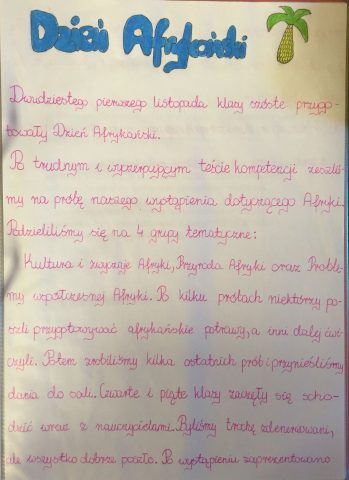 Dzień Afrykański
Dwudziestego pierwszego listopada klasy szóste przygo-
towały Dzień Afrykański.
Po trudnym i wyczerpującym teście kompetencji zeszliś-
my na próbę naszego wystąpienia dotyczącego Afryki.
Podzieliliśmy się na 4 grupy tematyczne:
Kultura i zwyczaje Afryki, Przyroda Afryki oraz Proble-
my współczesnej Afryki. Po kilku próbach niektórzy po-
szli przygotowywać afrykańskie potrawy, a inni dalej ćwi-
czyli. Potem zrobiliśmy kilka ostatnich prób i przynieśliśmy
dania do sali. Czwarte i piąte klasy zaczęły się scho-
dzić wraz z nauczycielami. Byliśmy trochę zdenerwowani,
ale wszystko dobrze poszło. W wystąpieniu zaprezentowano